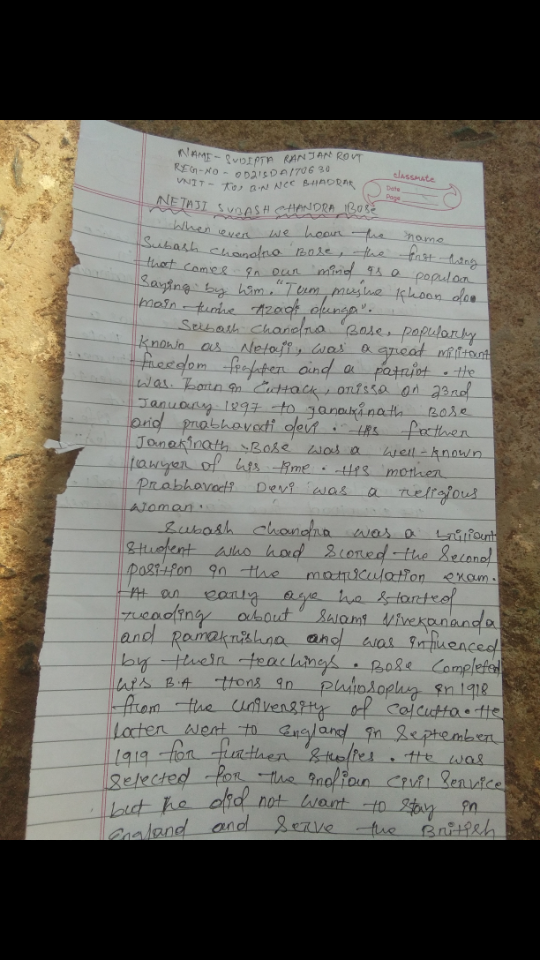 NAME- SUDIPTA RANJAN ROUT
REG-NO-
UNIT- BN NCC BHADRAK
classmate
Date
Page
NETAJI SUBASH CHANDRA BOSE
When ever we hear the name
Subash Chandra Bose, the first thing
that comes in our mind is a popular
saying by him. "Tum mujhe Khoon do
main tumhe Azadi dunga".
Subash Chandra Bose, popularly
known as Netaji, was a great militant
freedom fighter and a patriot. He
was Born in Cuttack, orissa on 23rd
January 1897 to Janakinath Bose
and prabhavati devi. His father
Janakinath Bose was a well-known
lawyer of his time. His mother
Prabhavati Devi was a religious
woman.
Subash Chandra was a
student who had scored the second
position in the matriculation exam.
At an early age he started
reading about Swami Vivekananda
and Ramakrishna and was influenced
by their teachings. Bose Completed
his B.A Hons in philosophy in 1918
from the University of Calcutta. He
later went to England in September
1919 for further studies. He was
selected for the indian civil Service
but he did not want to stay in
England and serve the British